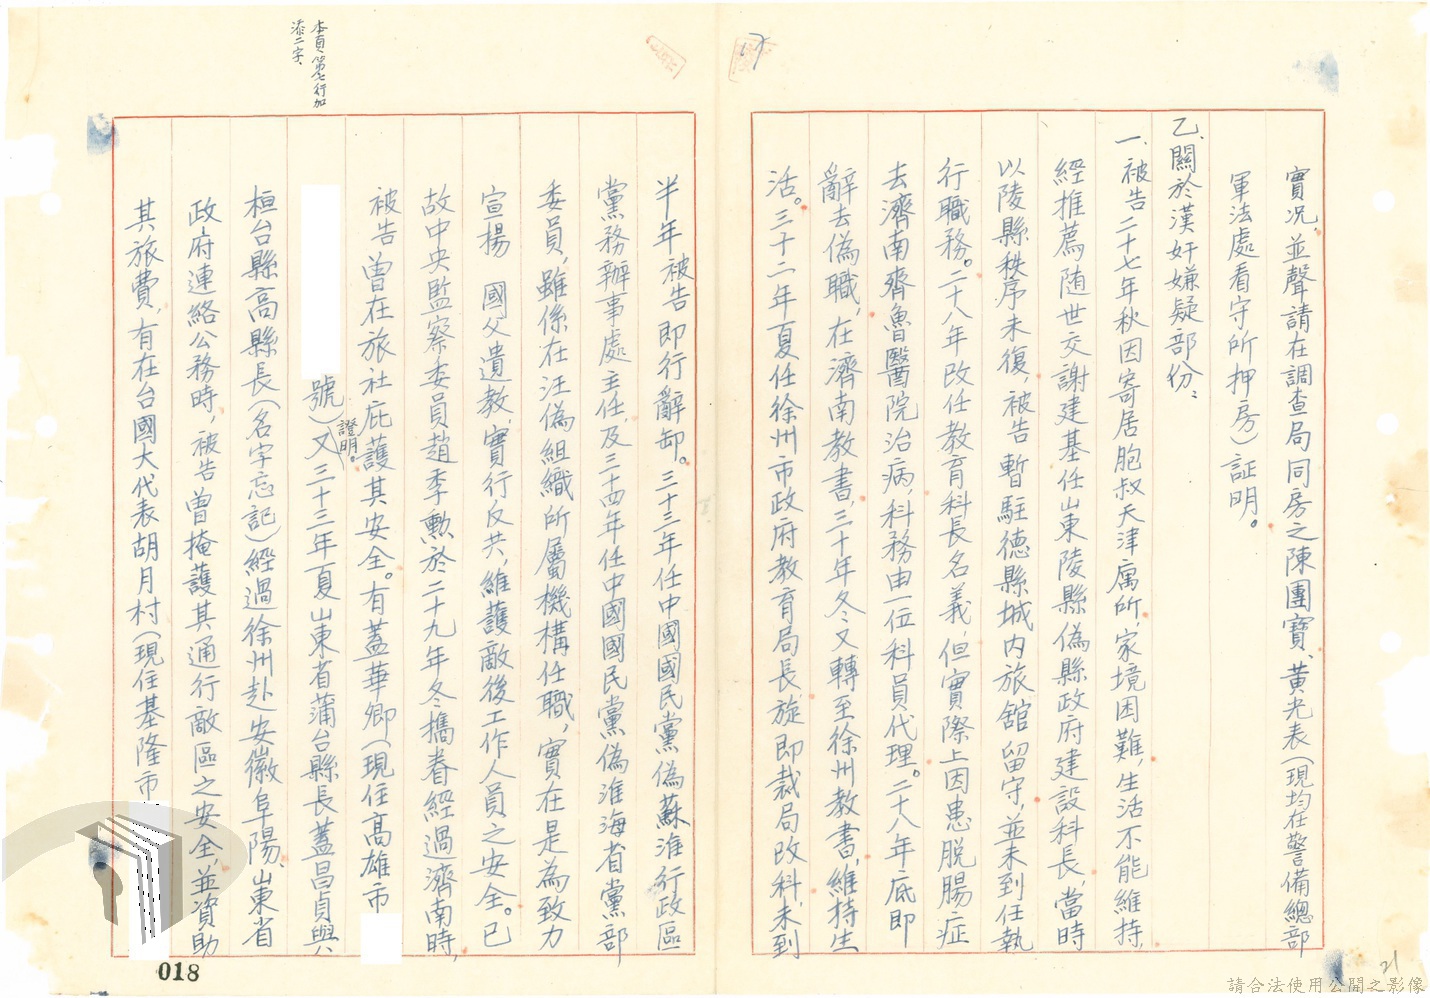 實況，並聲請在調查局同房之陳團寶、黃光表（現均在警備總部
軍法處看守所押房）証明。
乙、關於漢奸嫌疑部份：
一、被告二十七年秋因寄居胞叔天津寓所，家境困難，生活不能維持，
經推薦随世交謝建基任山東陵縣偽縣政府建設科長，當時
以陵縣秩序未復，被告暫駐德縣城内旅舘留守，並未到任執
行職務。二十八年改任教育科長名義，但實際上因患脫腸症
去濟南齊魯醫院治病，科務由一位科員代理。二十八年底即
辭去偽職，在濟南教書，三十年冬又轉至徐州教書，維持生
活。三十二年夏任徐州市政府教育局長，旋即裁局改科，未到
本頁第七行加
添二字、
半年被告即行辭卸。三十三年任中國國民黨偽蘇淮行政區
黨務辦事處主任，及三十四年任中國國民黨偽淮海省黨部
委員，雖係在汪偽組織所屬機構任職，實在是為致力
宣揚　國父遺教，實行反共，維護敵後工作人員之安全。已
故中央監察委員趙季勲於二十九年冬攜眷經過濟南時，
被告曾在旅社庇護其安全。有蓋華卿（現住高雄市
號）證明。又三十三年夏山東省蒲台縣長蓋昌貞與
桓台縣高縣長（名字忘記）經過徐州赴安徽阜陽、山東省
政府連絡公務時，被告曾掩護其通行敵區之安全，並資助
其旅費，有在台國大代表胡月村（現住基隆市
018
21
請合法使用公開之影像